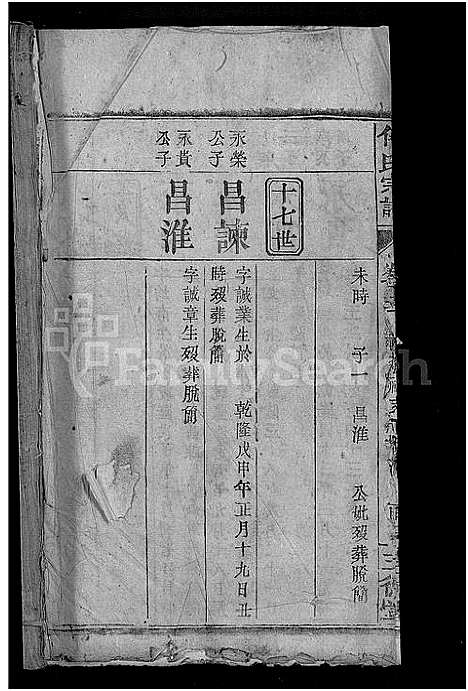 未時 子一 昌淮 公妣歿葬脫簡
十七世
永榮公子
昌諫
字誠業生於 乾隆戊申年正月十九日丑
時歿葬脫簡
永貴公子
昌淮
字誠章生歿葬脫簡
氏宗譜
FamilySearch